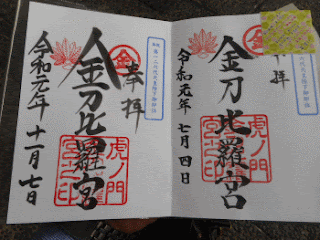 奉拝
金刀比羅宮
虎ノ門
宮之印
令和元年 七月四日
㊎
奉拝
金刀比羅宮
虎ノ門
宮之印
令和元年 十一月七日